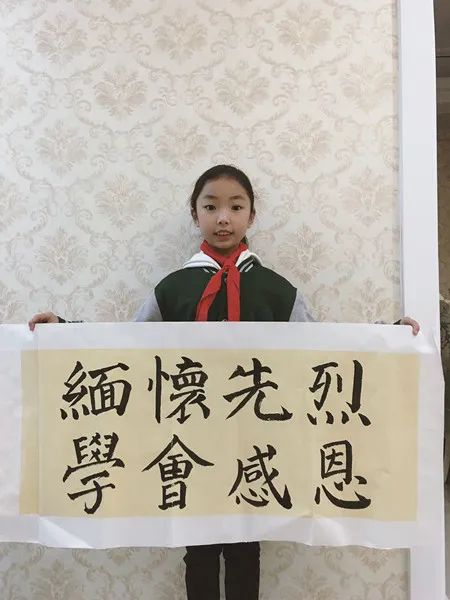 緬懷先烈
學會感恩